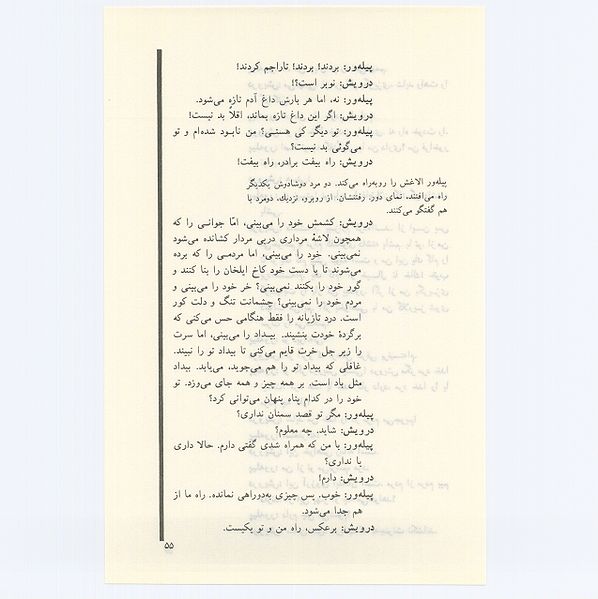 پیله‌ور: بردند! بردند! تاراجم کردند!
درویش: نوبر است؟!
پیله‌ور: نه، اما هر بارش داغ آدم تازه می‌شود.
درویش: اگر این داغ تازه بماند، اقلاً بد نیست!
پیله‌ور: تو دیگر کی هستی؟ من نابود شده‌ام و تو
می‌گوئی بد نیست؟
درویش: راه بیفت برادر، راه بیفت!
پیله‌ور الاغش را روبه‌راه می‌کند. دو مرد دوشادوش یکدیگر
راه می‌افتند. نمای دور. رفتنشان. از روبرو، نزدیك، دومرد با
هم گفتگو می‌کنند.
درویش: کشمش خود را می‌بینی، امّا جوانی را که
همچون لاشهٔ مرداری درپی مردار کشانده می‌شود
نمی‌بینی. خود را می‌بینی، اما مردمی را که برده
می‌شوند تا با دست خود کاخ ایلخان را بنا کنند و
گور خود را بکنند نمی‌بینی؟ خر خود را می‌بینی و
مردم خود را نمی‌بینی؟ چشمانت تنگ و دلت کور
است. درد تازیانه را فقط هنگامی حس می‌کنی که
برگردهٔ خودت بنشیند. بیداد را می‌بینی، اما سرت
را زیر جل خرت قایم می‌کنی تا بیداد تو را نبیند.
غافلی که بیداد تو را هم می‌جوید، می‌یابد. بیداد
مثل باد است. بر همه چیز و همه جای می‌وزد. تو
خود را در کدام پناه پنهان می‌توانی کرد؟
پیله‌ور: مگر تو قصد سمنان نداری؟
درویش: شاید. چه معلوم؟
پیله‌ور: با من که همراه شدی گفتی دارم. حالا داری
یا نداری؟
درویش: دارم!
پیله‌ور: خوب. پس چیزی به‌دوراهی نمانده. راه ما از
هم جدا می‌شود.
درویش: برعکس، راه من و تو یکیست.
۵۵